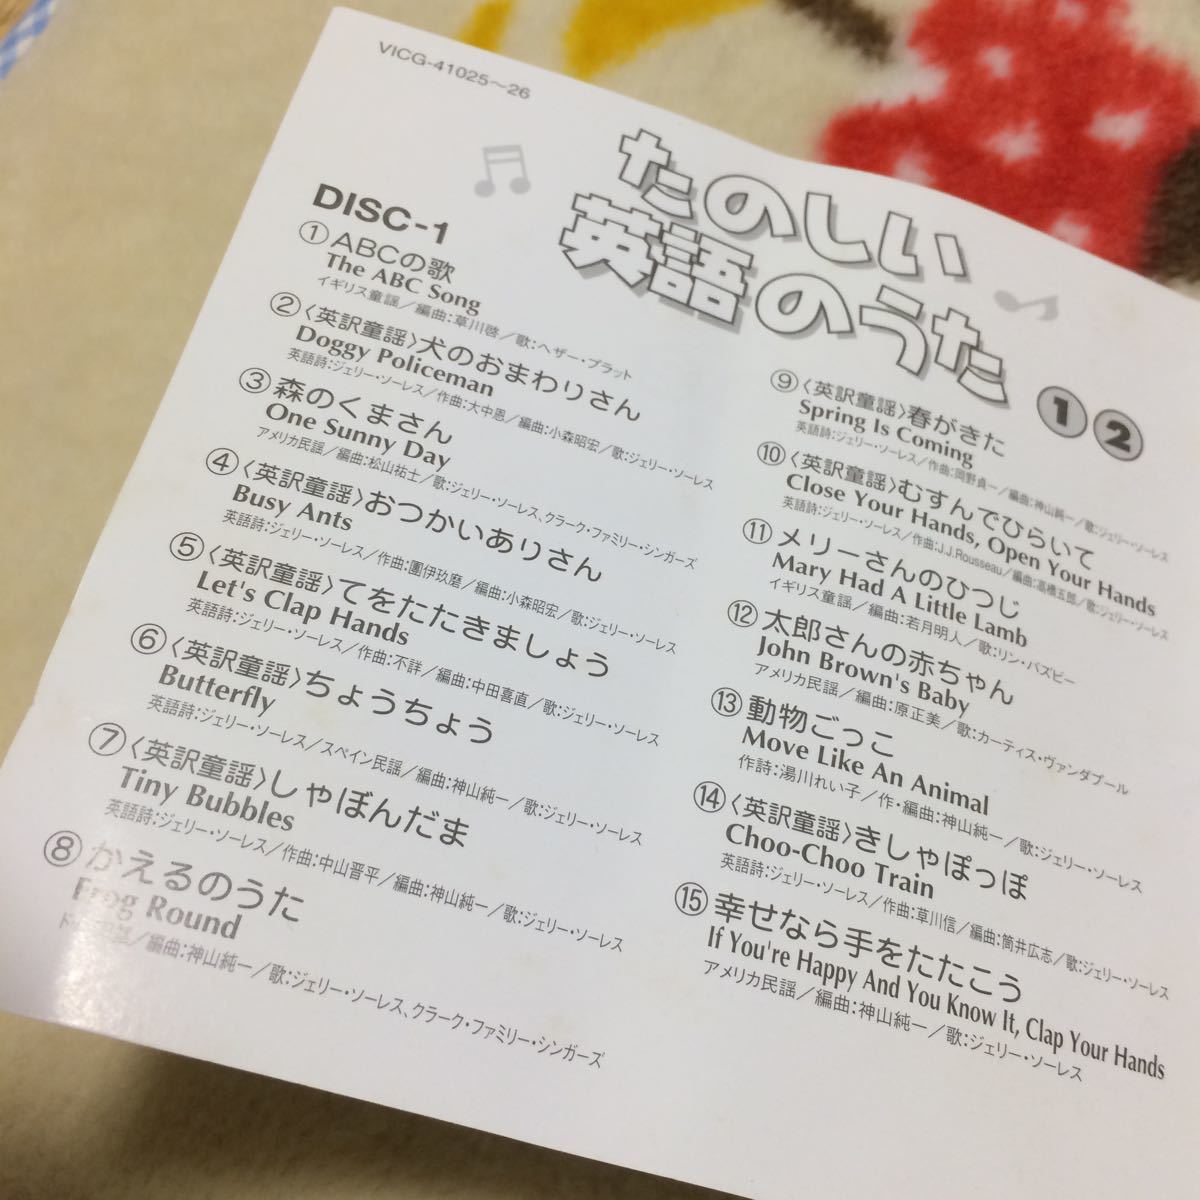 VICG-41025〜26
たのしい
英語のうた ①②
DISC-1
①ABCの歌
The ABC Song
イギリス童謡／編曲:草川啓／歌:ヘザー・プラット
②〈英訳童謡〉犬のおまわりさん
Doggy Policeman
英語詩:ジェリー・ソーレス／作曲:大中恩／編曲:小森昭宏／歌:ジェリー・ソーレス
③森のくまさん
One Sunny Day
アメリカ民謡／編曲:松山祐士／歌:ジェリー・ソーレス、クラーク・ファミリー・シンガーズ
④〈英訳童謡〉おつかいありさん
Busy Ants
英語詩:ジェリー・ソーレス／作曲:團伊玖磨／編曲:小森昭宏／歌:ジェリー・ソーレス
⑤〈英訳童謡〉てをたたきましょう
Let's Clap Hands
英語詩:ジェリー・ソーレス／作曲:不詳／編曲:中田喜直／歌:ジェリー・ソーレス
⑥〈英訳童謡〉ちょうちょう
Butterfly
英語詩:ジェリー・ソーレス／スペイン民謡／編曲:神山純一／歌:ジェリー・ソーレス
⑦〈英訳童謡〉しゃぼんだま
Tiny Bubbles
英語詩:ジェリー・ソーレス／作曲:中山晋平／編曲:神山純一／歌:ジェリー・ソーレス
⑧かえるのうた
Frog Round
／編曲:神山純一／歌:ジェリー・ソーレス、クラーク・ファミリー・シンガーズ
⑨〈英訳童謡〉春がきた
Spring Is Coming
英語詩:ジェリー・ソーレス／作曲:岡野貞一／編曲:神山純一／歌:ジェリー・ソーレス
⑩〈英訳童謡〉むすんでひらいて
Close Your Hands, Open Your Hands
英語詩:ジェリー・ソーレス／作曲:J.J.Rousseau／編曲:高橋五郎／歌:ジェリー・ソーレス
⑪メリーさんのひつじ
Mary Had A Little Lamb
イギリス童謡／編曲:若月明人／歌:リン・バズビー
⑫太郎さんの赤ちゃん
John Brown's Baby
アメリカ民謡／編曲:原正美／歌:カーティス・ヴァンダプール
⑬動物ごっこ
Move Like An Animal
作詩:湯川れい子／作・編曲:神山純一／歌:ジェリー・ソーレス
⑭〈英訳童謡〉きしゃぽっぽ
Choo-Choo Train
英語詩:ジェリー・ソーレス／作曲:草川信／編曲:筒井広志／歌:ジェリー・ソーレス
⑮幸せなら手をたたこう
If You're Happy And You Know It, Clap Your Hands
アメリカ民謡／編曲:神山純一／歌:ジェリー・ソーレス